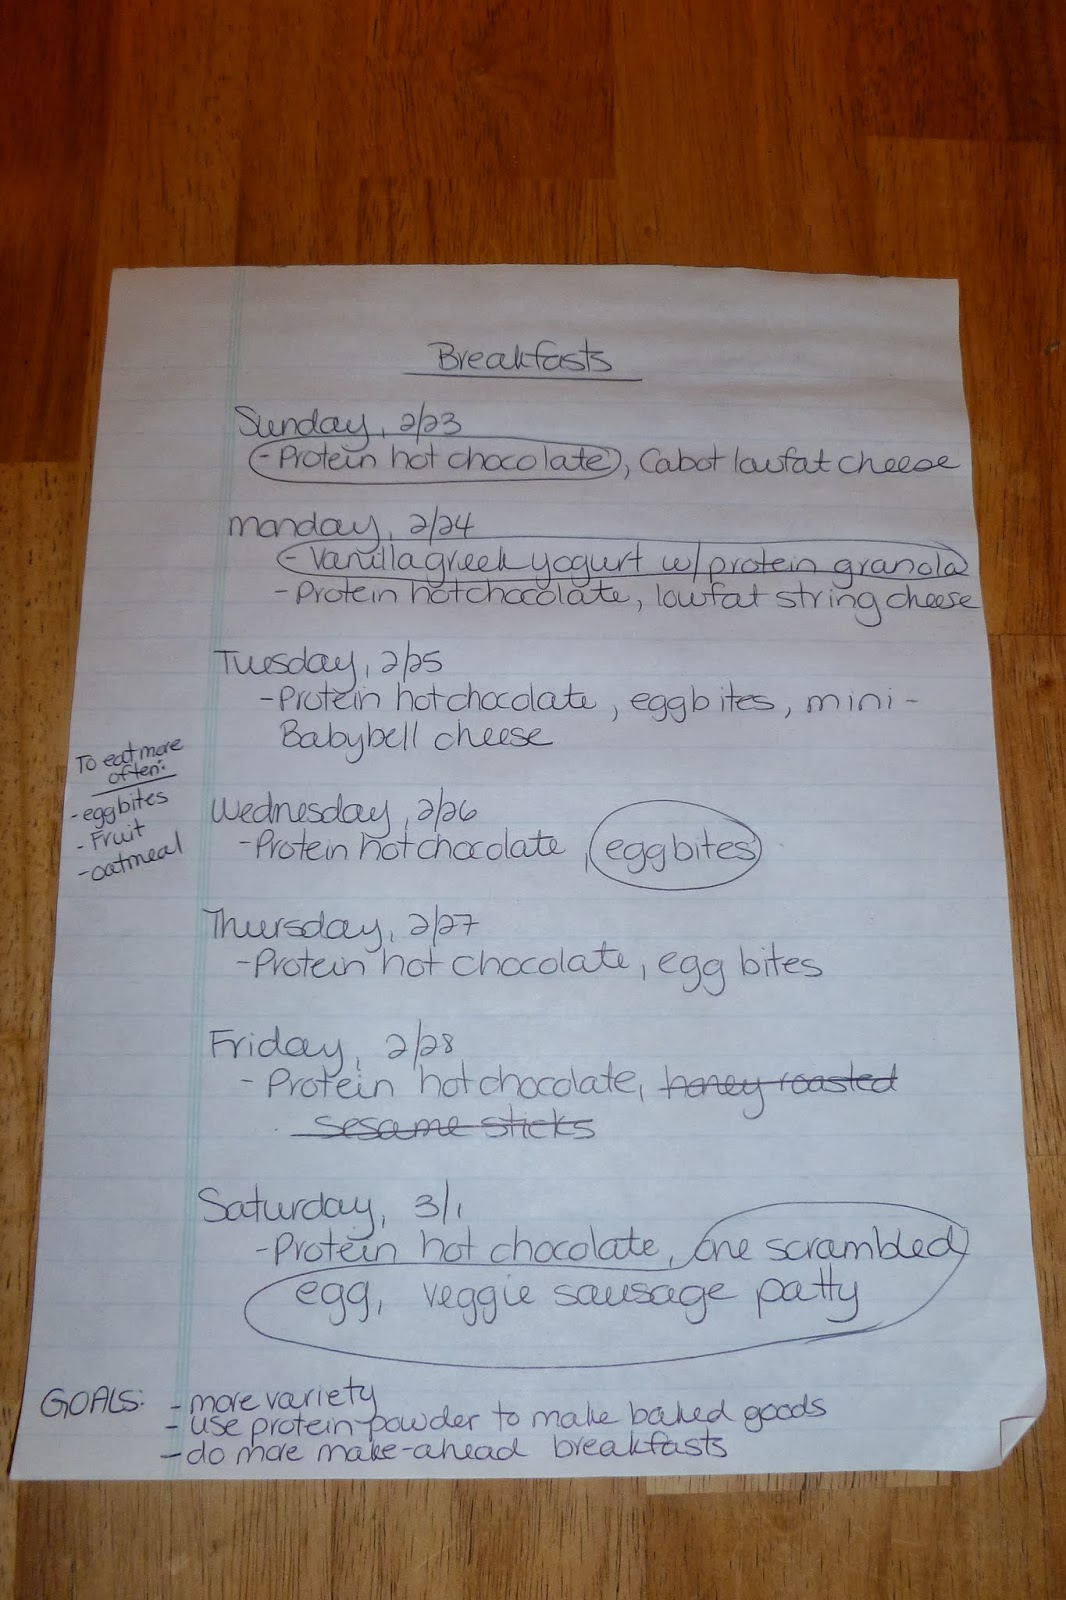 Breakfasts
Sunday, 2/23
- Protein hot chocolate, Cabot lowfat cheese
Monday, 2/24
- Vanilla greek yogurt w/ protein granola
- Protein hot chocolate, lowfat string cheese
Tuesday, 2/25
- Protein hot chocolate, egg bites, mini-
Babybell cheese
To eat more
often:
- egg bites
- Fruit
- oatmeal
Wednesday, 2/26
- Protein hot chocolate, egg bites
Thursday, 2/27
- Protein hot chocolate, egg bites
Friday, 2/28
- Protein hot chocolate, honey roasted
sesame sticks
Saturday, 3/1
- Protein hot chocolate, one scrambled
egg, veggie sausage patty
GOALS: - more variety
- use protein powder to make baked goods
- do more make-ahead breakfasts